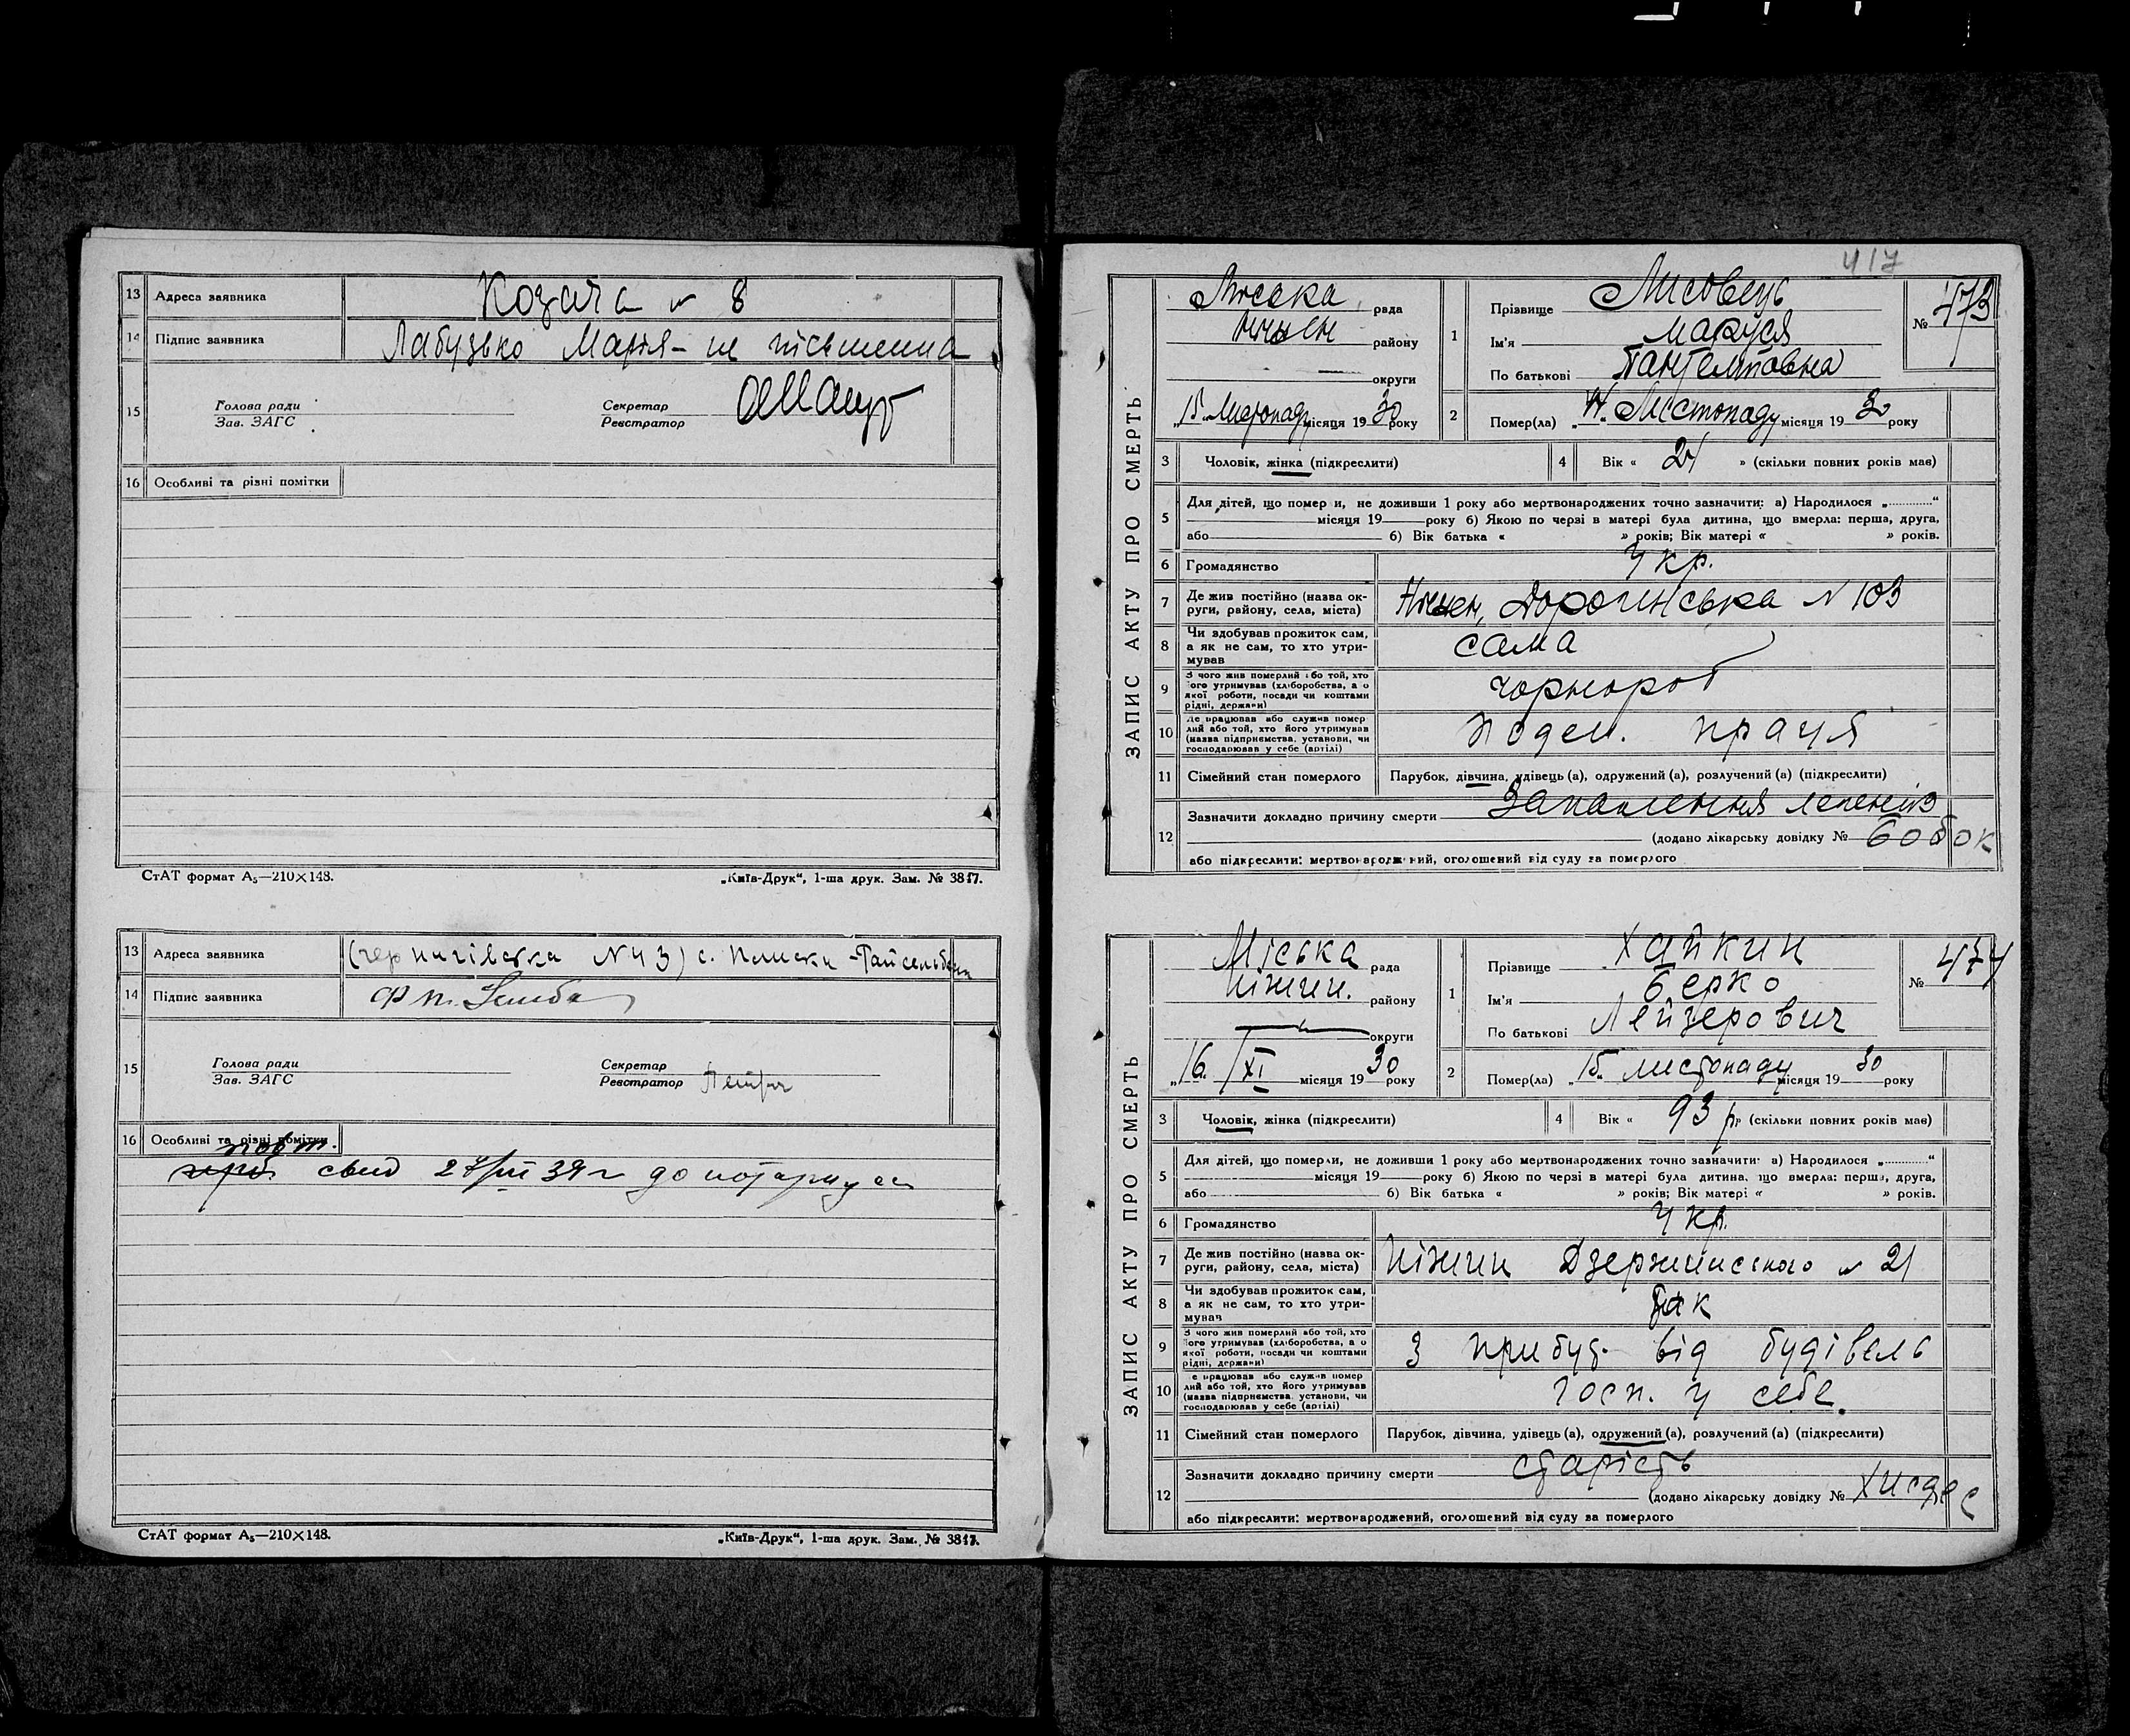 13 Адреса заявника Козача № 8
14 Підпис заявника Лабузько Марія - не письменна
15 Голова ради Секретар
Зав. ЗАГС Реєстратор
16 Особливі та різні помітки
СтАТ формат А5—210×148. „Київ-Друк“, 1-ша друк. Зам. № 3817.
13 Адреса заявника (Чернигівська № 43) с.
14 Підпис заявника
15 Голова ради Секретар
Зав. ЗАГС Реєстратор
16 Особливі та різні помітки
повт.
свид 27/III 39 г до нотариуса
СтАТ формат А5—210×148. „Київ-Друк“, 1-ша друк. Зам. № 3817.
417
ЗАПИС АКТУ ПРО СМЕРТЬ
Міська рада
Ніжен району
округи
„15“ Листопаду місяця 1930 року
1 Прізвище Лисовець
Ім'я Маруся
По батькові Пантелиповна
№ 473
2 Помер(ла) „14“ Листопаду місяця 1930 року
3 Чоловік, жінка (підкреслити)
4 Вік « 21 » (скільки повних років мав)
5 Для дітей, що померли, не доживши 1 року або мертвонароджених точно зазначити: а) Народилося „............“
місяця 19 року б) Якою по черзі в матері була дитина, що вмерла: перша, друга,
або 6) Вік батька « » років; Вік матері « » років.
6 Громадянство Укр.
7 Де жив постійно (назва ок-
руги, району, села, міста) Ніжен, Дорогинська № 103
8 Чи здобував прожиток сам,
а як не сам, то хто утри-
мував сама
9 З чого жив померлий або той, хто
його утримував (хліборобства, а о
якої роботи, посади чи коштами
рідні, держави) чорнороб
10 Де працював або служив помер
лий або той, хто його утримував
(назва підприємства, установи, чи
господарював у себе (артілі) поден. праця
11 Сімейний стан померлого Парубок, дівчина, удівець (а), одружений (а), розлучений (а) (підкреслити)
12 Зазначити докладно причину смерти Запалення легенів
(додано лікарську довідку № Бобок
або підкреслити: мертвонароджений, оголошений від суду за померлого
ЗАПИС АКТУ ПРО СМЕРТЬ
Міська рада
Ніжин. району
округи
„16“ XI місяця 1930 року
1 Прізвище Хайкин
Ім'я Берко
По батькові Лейзерович
№ 474
2 Помер(ла) „15“ листопаду місяця 1930 року
3 Чоловік, жінка (підкреслити)
4 Вік « 93 р » (скільки повних років мав)
5 Для дітей, що померли, не доживши 1 року або мертвонароджених точно зазначити: а) Народилося „............“
місяця 19 року б) Якою по черзі в матері була дитина, що вмерла: перша, друга,
або 6) Вік батька « » років; Вік матері « » років.
6 Громадянство Укр.
7 Де жив постійно (назва ок-
руги, району, села, міста) Ніжин Дзержинського № 21
8 Чи здобував прожиток сам,
а як не сам, то хто утри-
мував так
9 З чого жив померлий або той, хто
його утримував (хліборобства, а о
якої роботи, посади чи коштами
рідні, держави) З прибут. від будівель
10 Де працював або служив помер
лий або той, хто його утримував
(назва підприємства, установи, чи
господарював у себе (артілі) госп. у себе.
11 Сімейний стан померлого Парубок, дівчина, удівець (а), одружений (а), розлучений (а) (підкреслити)
12 Зазначити докладно причину смерти старість
(додано лікарську довідку №
або підкреслити: мертвонароджений, оголошений від суду за померлого